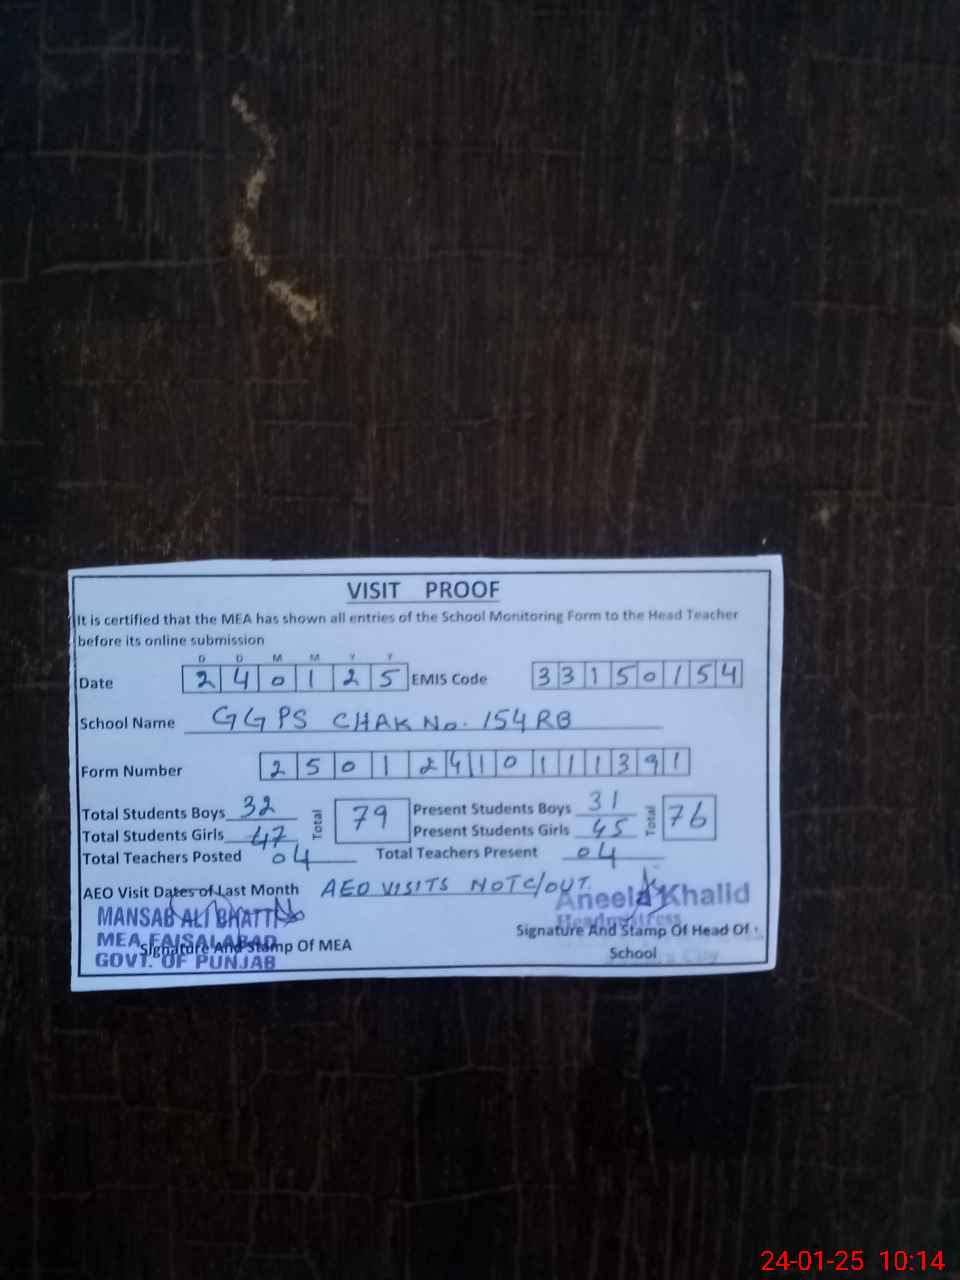 VISIT PROOF
It is certified that the MEA has shown all entries of the School Monitoring Form to the Head Teacher
before its online submission
D D M M Y Y
Date 2 4 0 1 2 5 EMIS Code 3 3 1 5 0 1 5 4
School Name GGPS CHAK No. 154 RB
Form Number 2 5 0 1 2 4 1 0 1 1 1 3 9 1
Total Students Boys 32 Total 79 Present Students Boys 31 Total 76
Total Students Girls 47 Present Students Girls 45
Total Teachers Posted 04 Total Teachers Present 04
AEO Visit Dates of Last Month AEO VISITS NOT C/OUT.
MANSAB ALI BHATTI Aneela Khalid
Headmistress
MEA FAISALABAD Signature And Stamp Of Head Of
Signature And Stamp Of MEA School
GOVT. OF PUNJAB
24-01-25 10:14